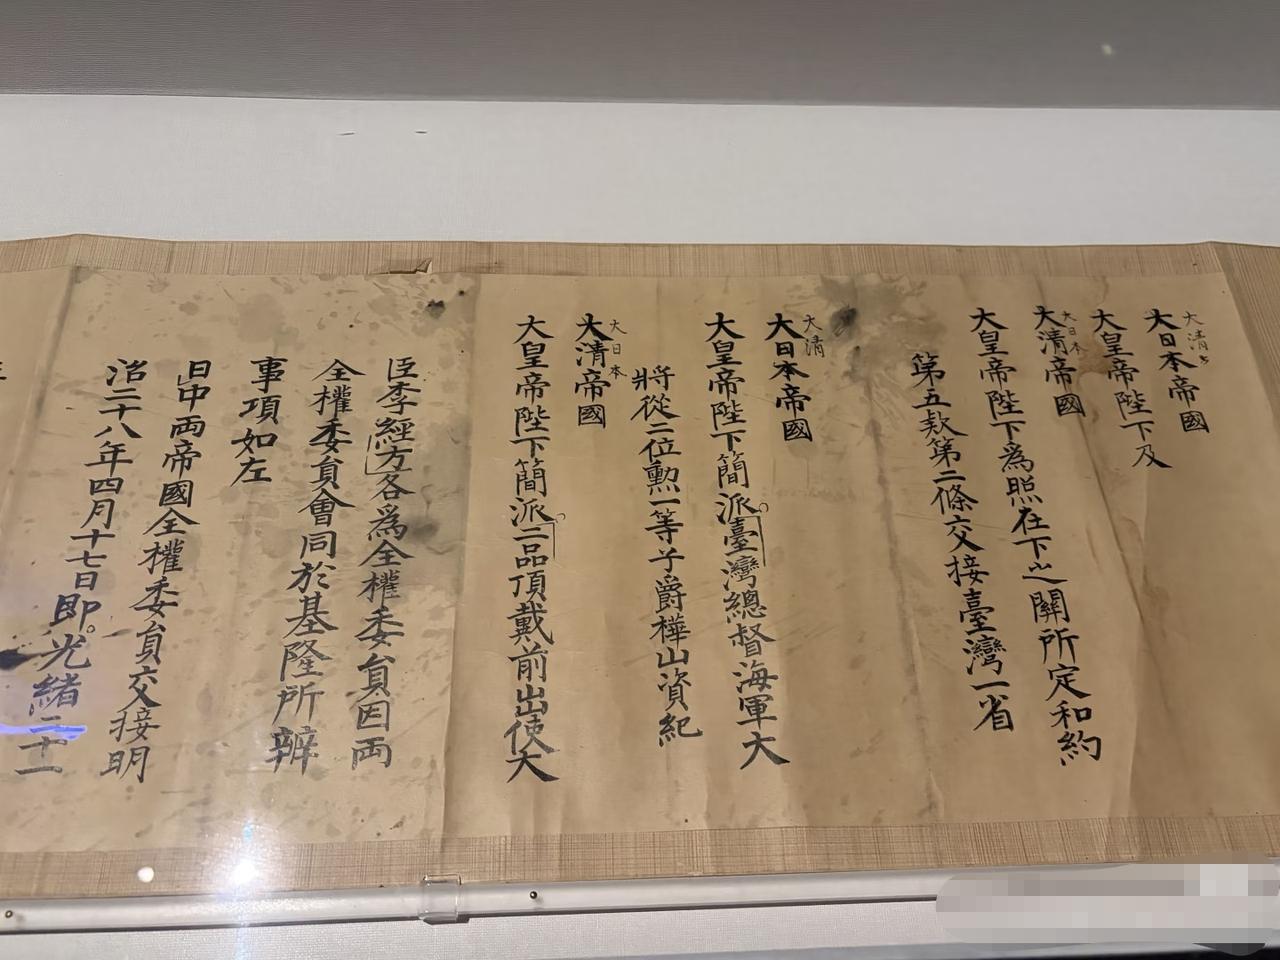 大清
大日本帝國
大皇帝陛下及
大日本
大清帝國
大皇帝陛下為照在下之關所定和約
第五款第二條交接臺灣一省
大清
大日本帝國
大皇帝陛下簡派臺灣總督海軍大
將從二位勲一等子爵樺山資紀
大日本
大清帝國
大皇帝陛下簡派二品頂戴前出使大
臣李經方各為全權委員因両
全權委員會同於基隆所辦
事項如左
日中両帝國全權委員交接明
治二十八年四月十七日即光緒二十一